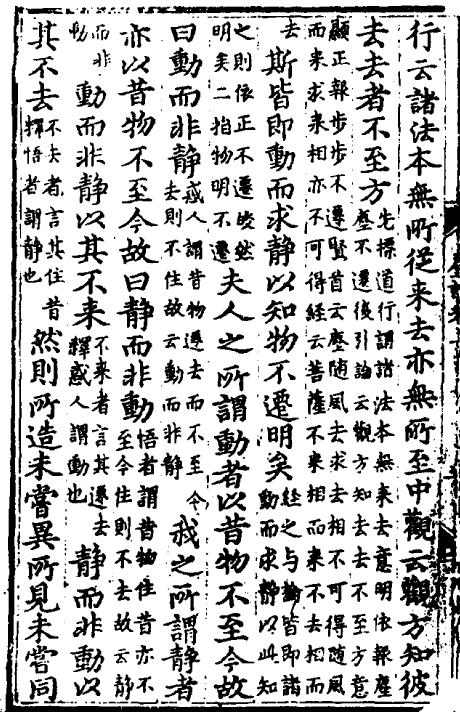 行云諸法本無所從来去亦無所至中觀云觀方知彼
去去者不至方
先標道行謂諸法本無来去意明依報塵
塵不遷後引論云觀方知去去不至方意
顯正報步步不遷賢首云塵随風去求去相不可得随風
而来求来相亦不可得經云菩薩不来相而来不去相而
去
斯皆即動而求静以知物不遷明矣
經之与論皆即諸
動而求静以此知
之則依正不遷皎然
明矣二指物明不遷
夫人之所謂動者以昔物不至今故
曰動而非静
惑人謂昔物遷去而不至今
去則不住故云動而非静
我之所謂静者
亦以昔物不至今故曰静而非動
悟者謂昔物住昔亦不
至今住則不去故云静
而非
動
動而非静以其不来
不来者言其遷去
釋惑人謂動也
静而非動以
其不去
不去者言其住昔
釋悟者謂静也
然則所造未嘗異所見未嘗同